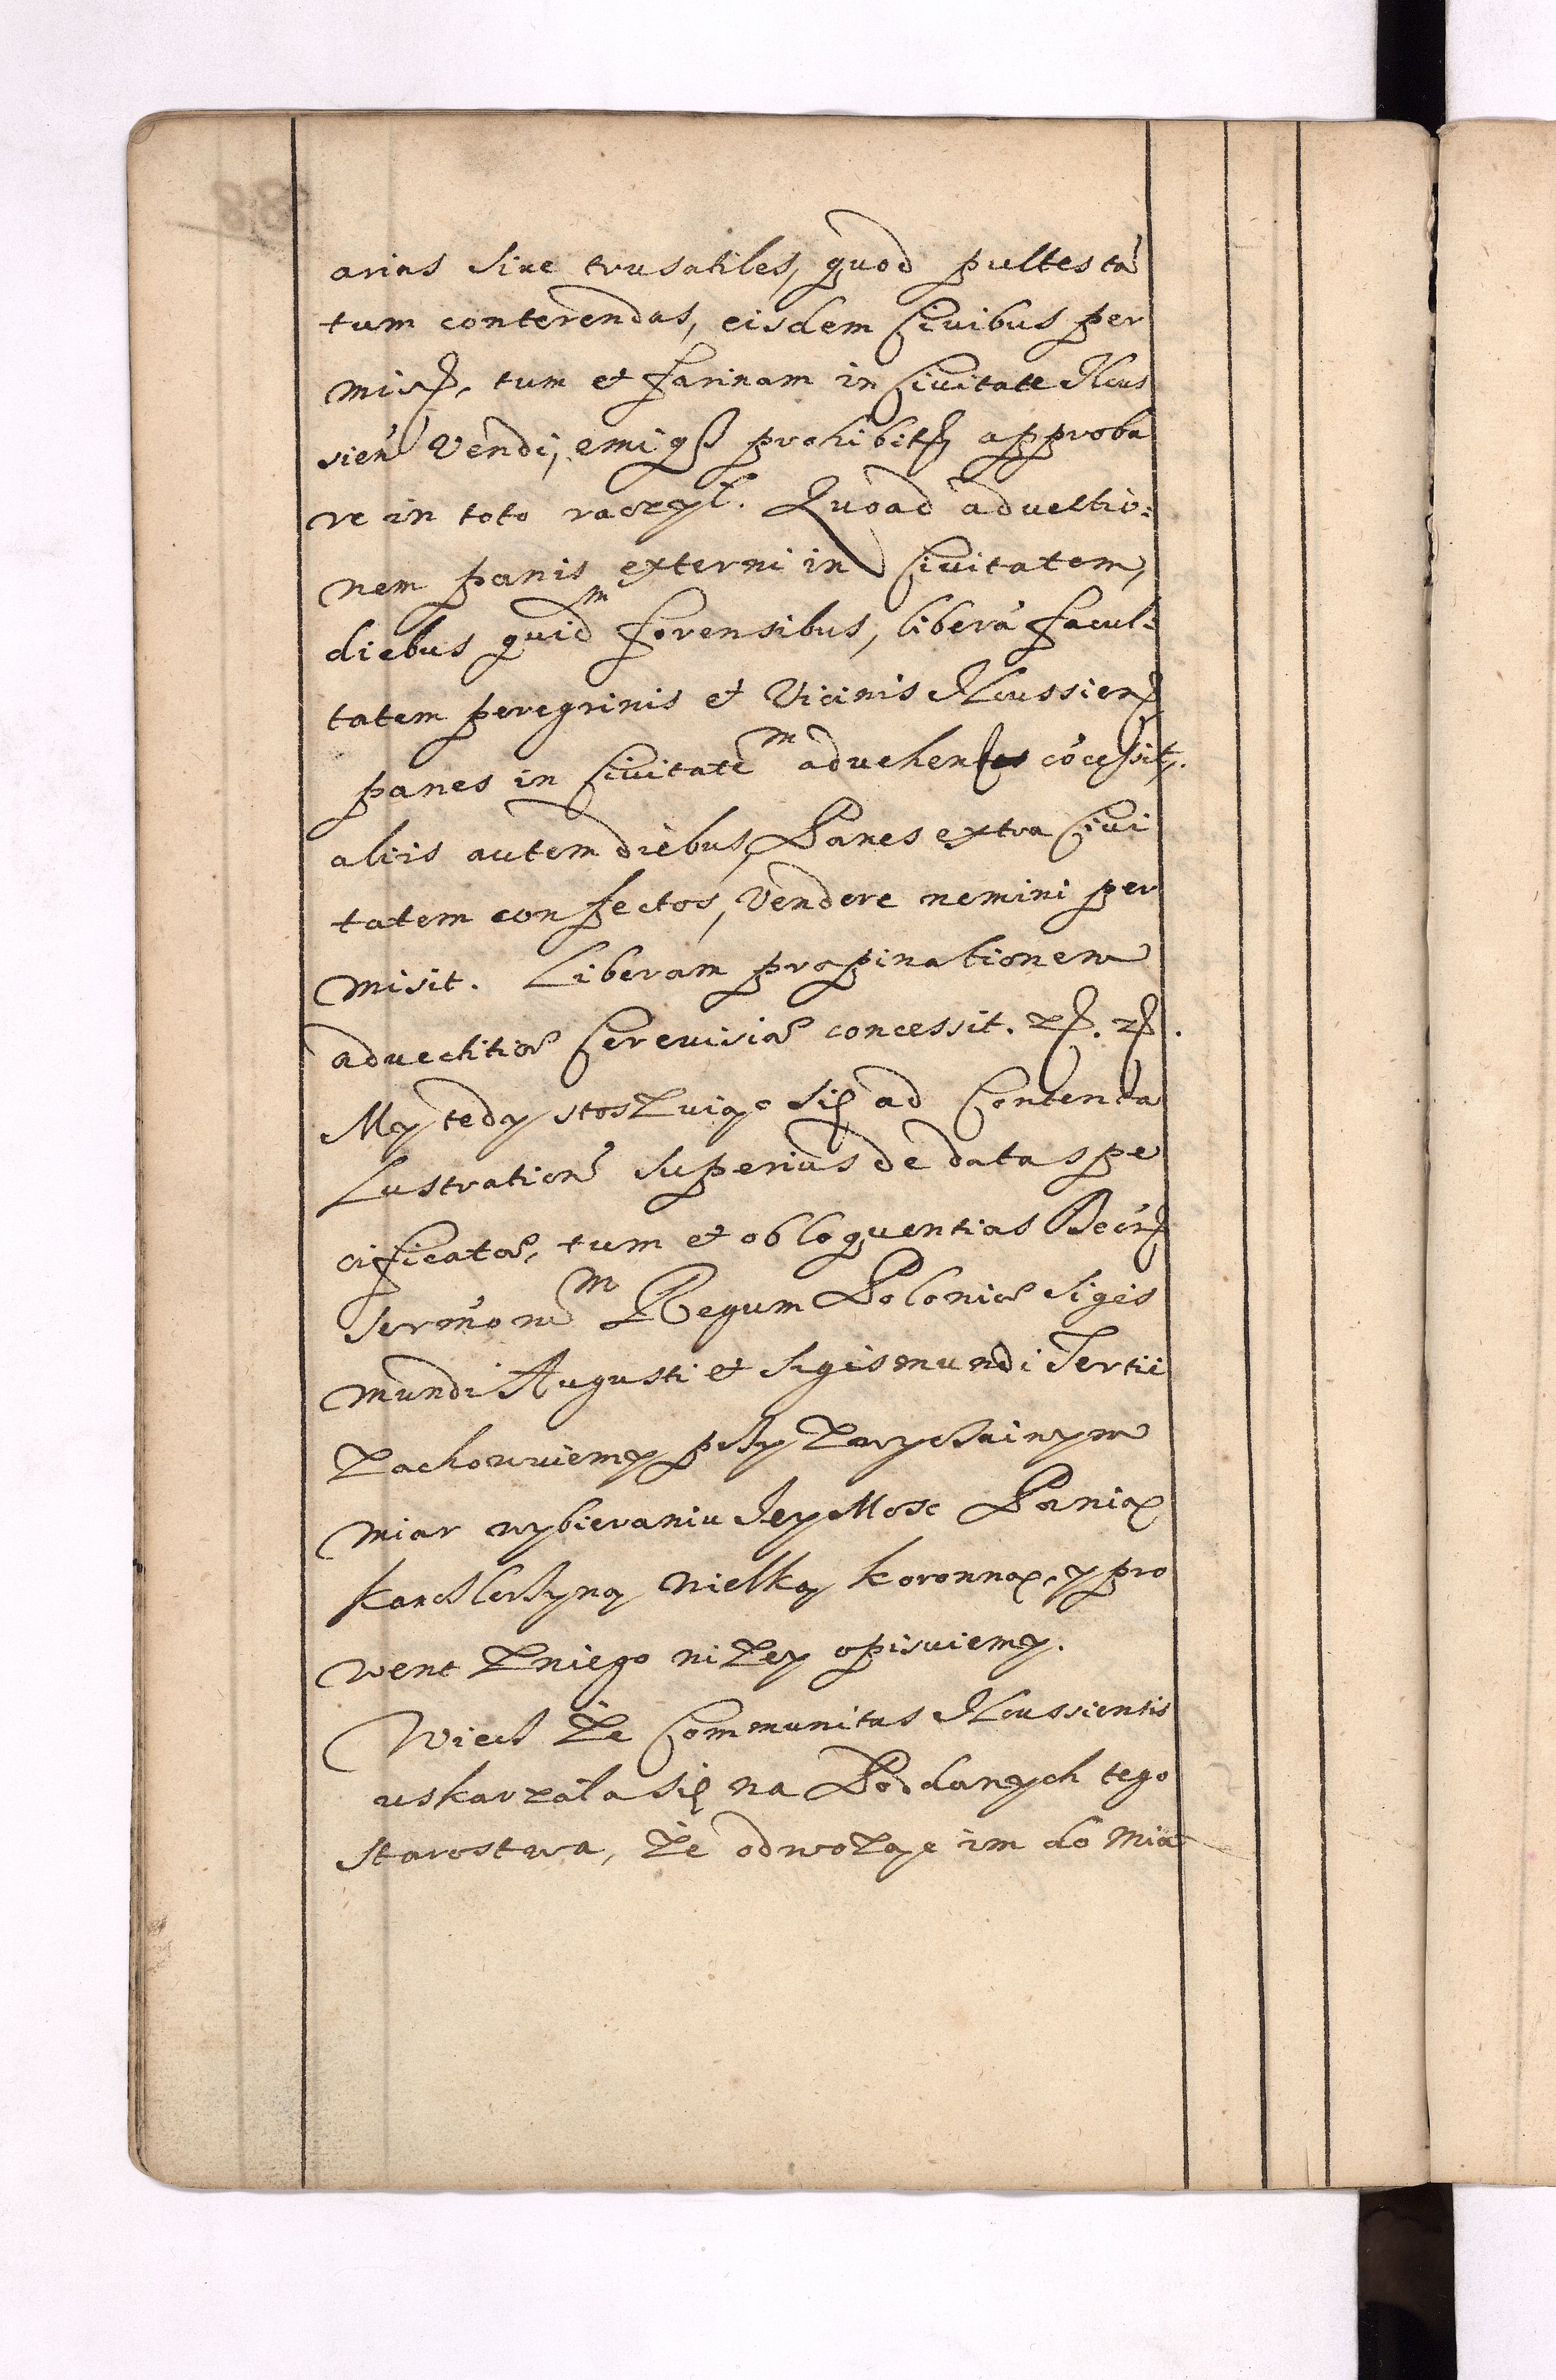 arias siue trusatiles, quod pultes tā
tum conterendas, eisdem Ciuibus per
miss. tum et farinam in Ciuitate Ilcus
sień Vendi, emiq̃ prohibitȩ approba
re in toto raczył. Quoad aduectio:
nem panis externi in Ciuitatem,
diebus quidᵐ forensibus, liberā facul:
tatem peregrinis et Vicinis Ilcussien
panes in Ciuitateᵐ aduehen cōcessit,
aliis autem diebus, Panes extra Ciui
tatem confectos, Vendere nemini per
misit. Liberam propinationem
aduectitiæ Cereuisiæ concessit. etc. etc.
My tedy stosuiąc się ad Contenta
Lustration superius de data spe
cificatæ, tum et obloquentias Decr
sermōruᵐ Regum Poloniæ Sigis
mundi Augusti et Sigismundi Tertii
Zachowuiemy przy Zwyczainym
miar wybieraniu Jey Mosc Panią
Kanclerzyną Wielką Koronną, y pro
went Zniego niZey opisuiemy.
Wiec Że Communitas Ilcussientis
uskarzała się na Poddanych tego
starostwa, Że odwoZąc im do Mia
88